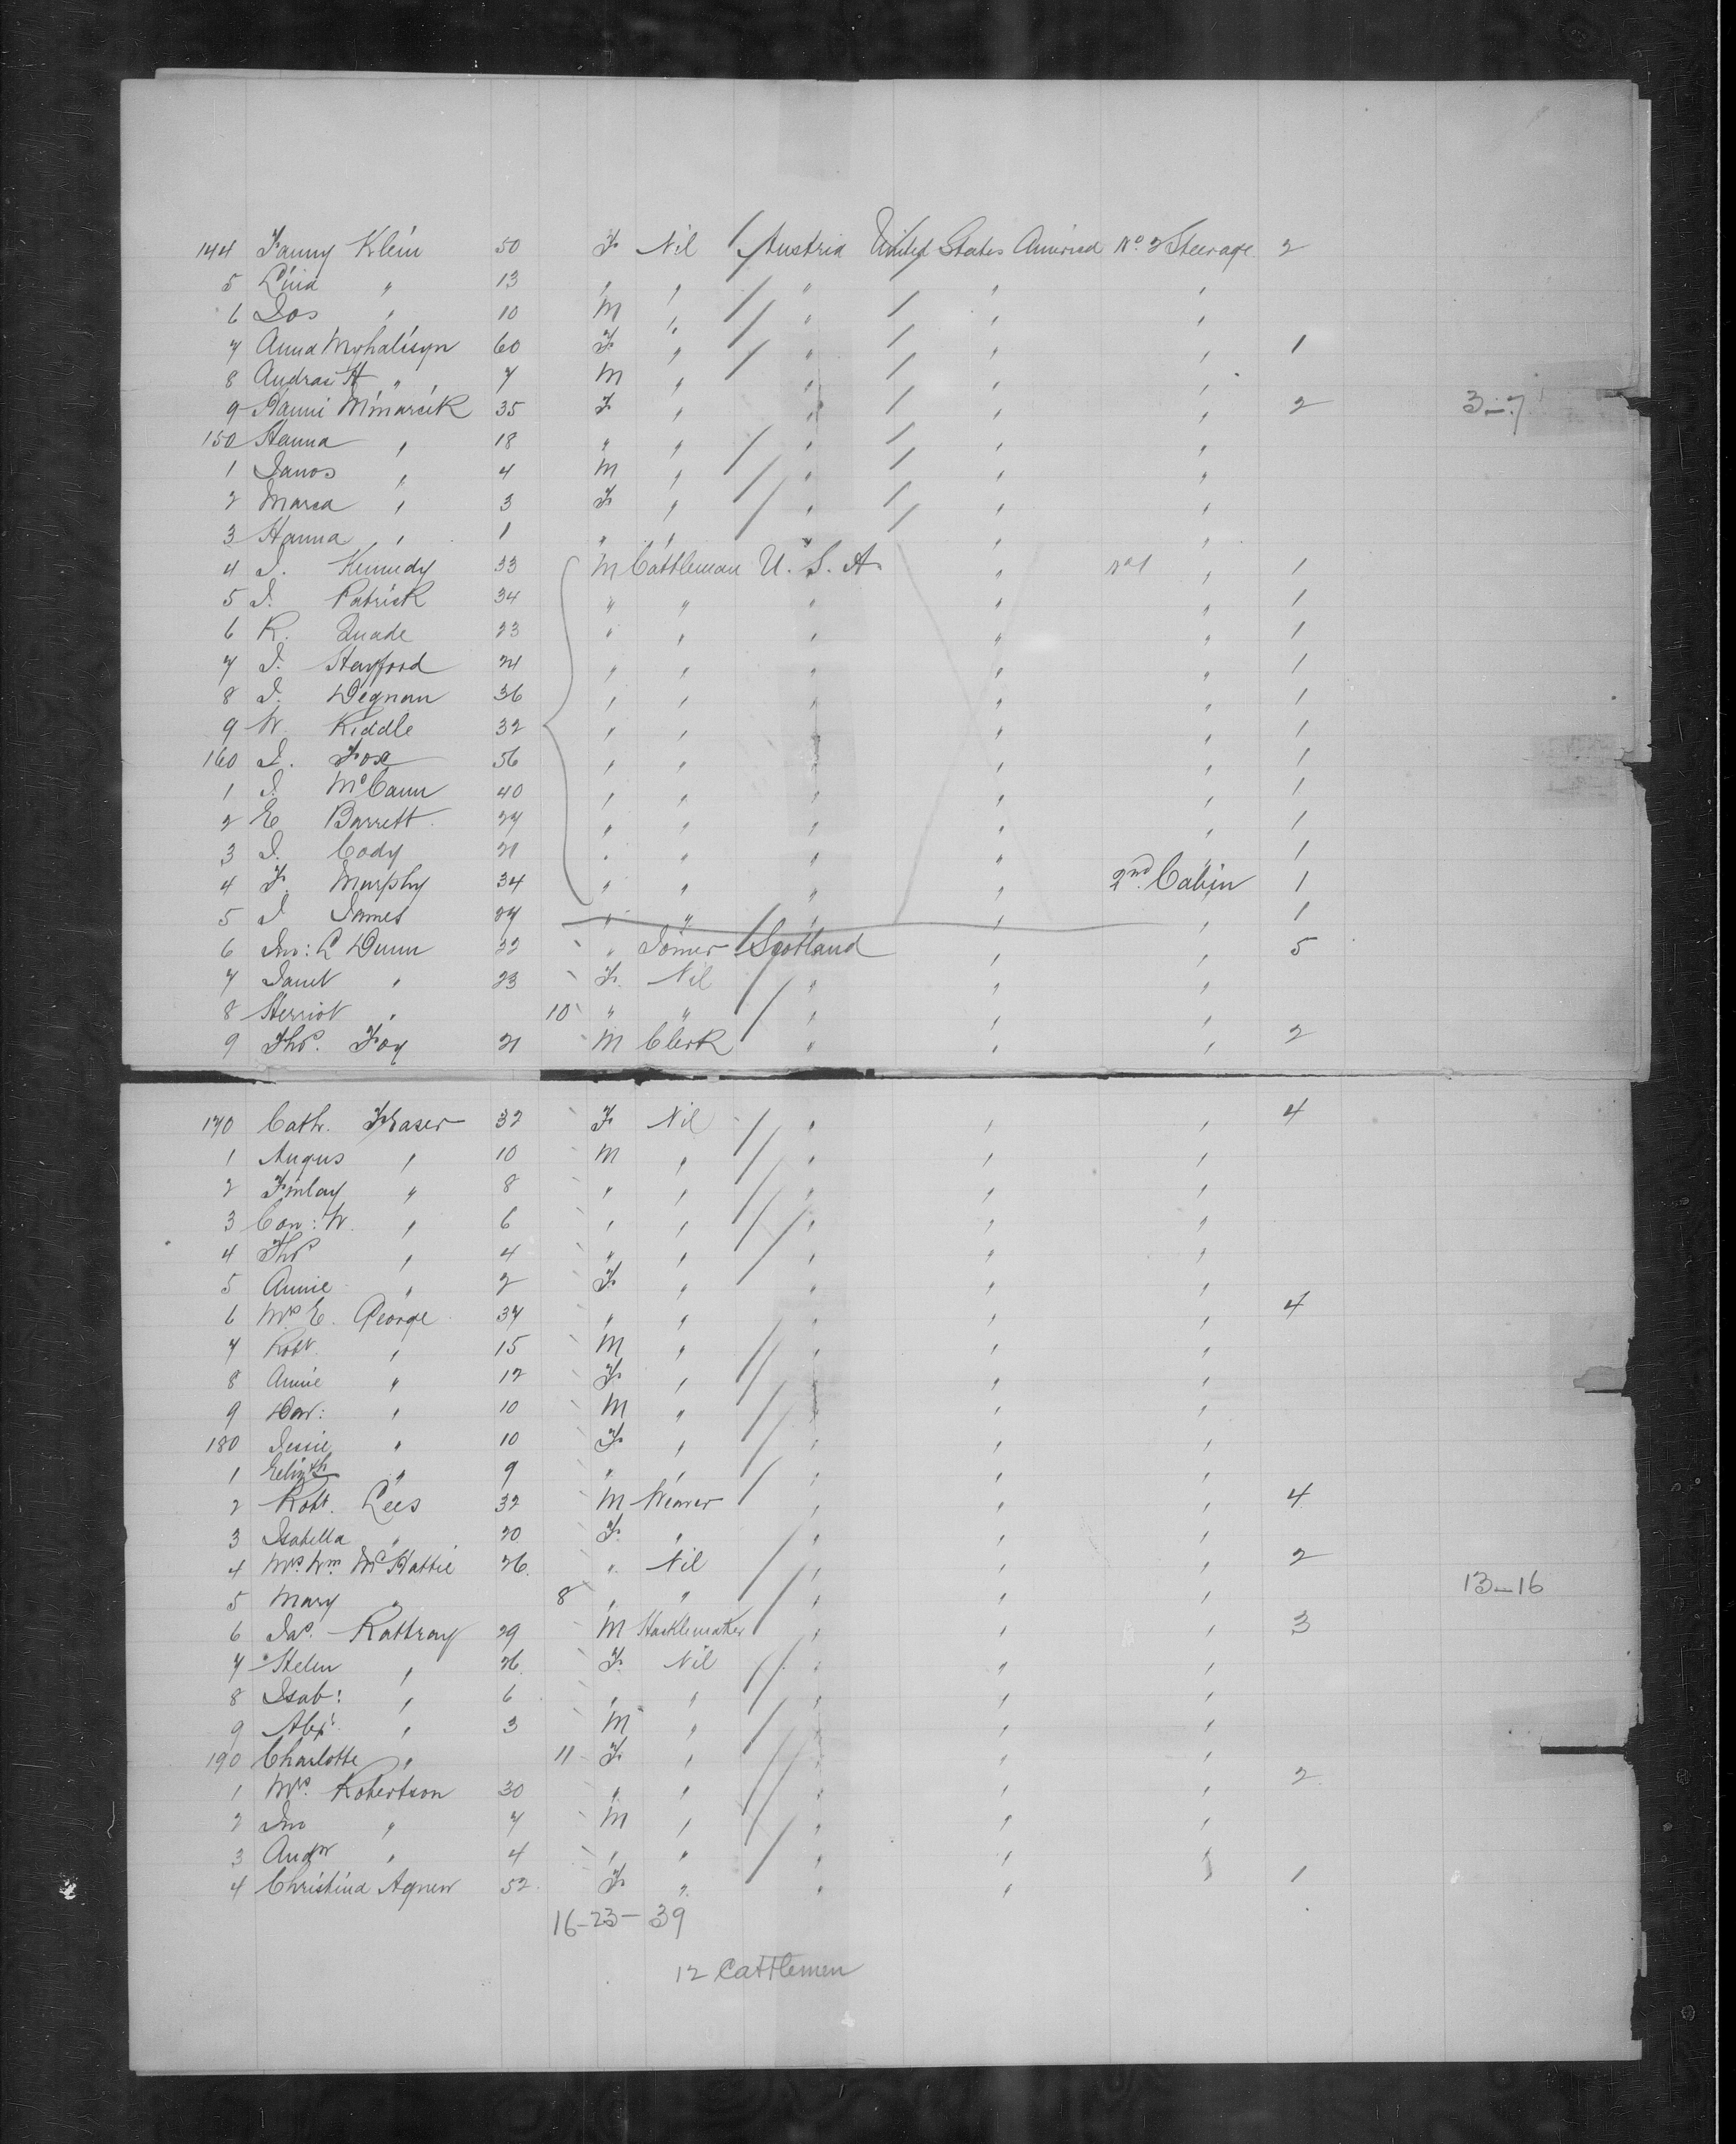 144 Fanny Klein 50 F Nil Austria United States America No. 2 Steerage 2
5 Lina " 13 " " " " "
6 Jos " 10 M " " " "
7 Anna Myhalisyn 60 F " " " " 1
8 Andras H " 7 M " " " "
9 Hanni Minarcik 35 F " " " " 2 3-7
150 Hanna " 18 " " " " "
1 Janos " 4 M " " " "
2 Marca " 3 F " " " "
3 Hanna " 1 " " " " "
4 J. Kennedy 33 M Cattleman U.S.A. " No 1 " 1
5 J. Patrick 34 " " " " " 1
6 R. Quade 23 " " " " " 1
7 J. Hayford 21 " " " " " 1
8 J. Degnan 36 " " " " " 1
9 W. Kiddle 32 " " " " " 1
160 J. Fox 56 " " " " " 1
1 J. McCann 40 " " " " " 1
2 E Barrett 27 " " " " " 1
3 J. Cody 21 " " " " " 1
4 F. Murphy 34 " " " " 2nd Cabin 1
5 J James 27 " " " " " 1
6 Jno: L Dunn 32 " Joiner Scotland " " 5
7 Janet " 23 F. Nil " " "
8 Herriot " 10 " " " " "
9 Thos. Foy 21 M Clerk " " " 2
170 Cath. Fraser 32 F Nil " " " 4
1 Angus " 10 M " " " "
2 Finlay " 8 " " " " "
3 Con: W. " 6 " " " " "
4 Thos " 4 " " " " "
5 Annie " 2 F " " " "
6 Mrs E. George 37 " " " " " 4
7 Robt. " 15 M " " " "
8 Annie " 12 F " " " "
9 Dav: " 10 M " " " "
180 Jessie " 10 F " " " "
1 Elizth " 9 " " " " "
2 Robt. Lees 32 M Weaver " " " 4
3 Isabella " 20 F. " " " "
4 Mrs. Wm. McHattie 26. " Nil " " " 2
5 Mary " 8 " " " " " 13-16
6 Jas. Rattray 29 M Hacklemaker " " " 3
7 Helen " 26. F. Nil " " "
8 Isab: " 6 " " " " "
9 Alexr. " 3 M " " " "
190 Charlotte " 11 F " " " "
1 Mrs. Robertson 30 " " " " " 2
2 Jno " 7 M " " " "
3 Andw " 4 " " " " "
4 Christina Agnew 52. F " " " " 1
16-23-39
12 Cattlemen